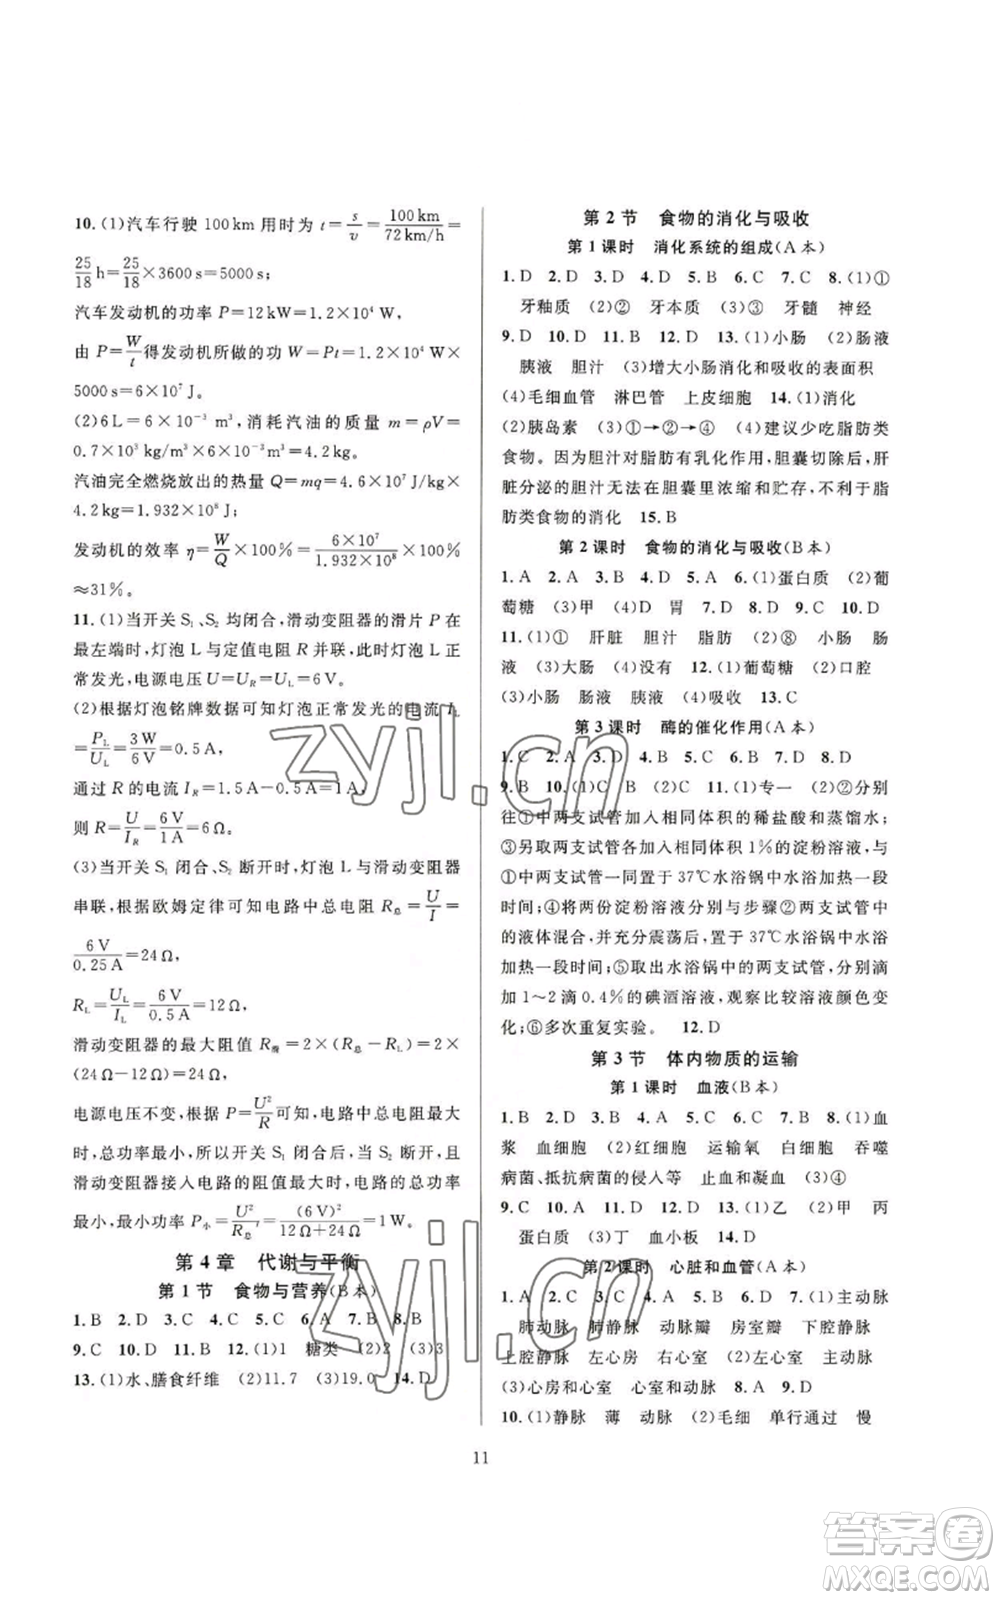 10. (1)汽车行驶 100 km 用时为 t = s/v = 100 km / 72 km/h =
25/18 h = 25/18 × 3600 s = 5000 s;
汽车发动机的功率 P = 12 kW = 1.2×10⁴ W,
由 P = W/t 得发动机所做的功 W = Pt = 1.2×10⁴ W×
5000 s = 6×10⁷ J。
(2)6 L = 6×10⁻³ m³,消耗汽油的质量 m = ρV =
0.7×10³ kg/m³×6×10⁻³ m³ = 4.2 kg,
汽油完全燃烧放出的热量 Q = mq = 4.6×10⁷ J/kg×
4.2 kg = 1.932×10⁸ J;
发动机的效率 η = W/Q ×100% = 6×10⁷ / 1.932×10⁸ ×100%
≈31%。
11. (1)当开关 S₁、S₂ 均闭合,滑动变阻器的滑片 P 在
最左端时,灯泡 L 与定值电阻 R 并联,此时灯泡 L 正
常发光,电源电压 U = U_R = U_L = 6 V。
(2)根据灯泡铭牌数据可知灯泡正常发光的电流 I_L
= P_L/U_L = 3 W/6 V = 0.5 A,
通过 R 的电流 I_R = 1.5 A-0.5 A = 1 A,
则 R = U/I_R = 6 V/1 A = 6 Ω。
(3)当开关 S₁ 闭合、S₂ 断开时,灯泡 L 与滑动变阻器
串联,根据欧姆定律可知电路中总电阻 R总 = U/I =
6 V/0.25 A = 24 Ω,
R_L = U_L/I_L = 6 V/0.5 A = 12 Ω,
滑动变阻器的最大阻值 R滑 = 2×(R总-R_L) = 2×
(24 Ω-12 Ω) = 24 Ω,
电源电压不变,根据 P = U²/R 可知,电路中总电阻最大时,
总功率最小,所以开关 S₁ 闭合、当 S₂ 断开,且
滑动变阻器接入电路的阻值最大时,电路的总功率
最小,最小功率 P小 = U²/R总′ = (6 V)²/12 Ω+24 Ω = 1 W。
第 4 章 代谢与平衡
第 1 节 食物与营养(B本)
1. B 2. D 3. D 4. C 5. C 6. A 7. B 8. B
9. C 10. D 11. B 12. (1)1 糖类 (2)2 (3)3
13. (1)水、膳食纤维 (2)11.7 (3)19.0 14. D
第 2 节 食物的消化与吸收
第 1 课时 消化系统的组成(A本)
1. D 2. D 3. D 4. D 5. B 6. C 7. C 8. (1)①
牙釉质 (2)② 牙本质 (3)③ 牙髓 神经
9. D 10. D 11. B 12. D 13. (1)小肠 (2)肠液
胰液 胆汁 (3)增大小肠消化和吸收的表面积
(4)毛细血管 淋巴管 上皮细胞 14. (1)消化
(2)胰岛素 (3)①→②→④ (4)建议少吃脂肪类
食物。因为胆汁对脂肪有乳化作用,胆囊切除后,肝
脏分泌的胆汁无法在胆囊里浓缩和贮存,不利于脂
肪类食物的消化 15. B
第 2 课时 食物的消化与吸收(B本)
1. A 2. A 3. D 4. A 5. A 6. (1)蛋白质 (2)葡
萄糖 (3)甲 (4)口 胃 7. D 8. D 9. C 10. D
11. (1)① 肝脏 胆汁 脂肪 (2)⑧ 小肠 肠
液 (3)大肠 (4)没有 12. (1)葡萄糖 (2)口腔
(3)小肠 肠液 胰液 (4)吸收 13. C
第 3 课时 酶的催化作用(A本)
1. C 2. A 3. D 4. C 5. D 6. B 7. D 8. D
9. B 10. (1)C B (2)C 11. (1)专一 (2)②分别
往①中两支试管加入相同体积的稀盐酸和蒸馏水;
③另取两支试管加入相同体积 1%的淀粉溶液,与
①中两支试管一同置于 37℃水浴锅中水浴加热一段
时间;④将两份淀粉溶液分别与步骤②两支试管中
的液体混合,并充分震荡后,置于 37℃水浴锅中水浴
加热一段时间;⑤取出水浴锅中的两支试管,分别滴
加 1～2 滴 0.4%的碘酒溶液,观察比较溶液颜色变
化;⑥多次重复实验。 12. D
第 3 节 体内物质的运输
第 1 课时 血液(B本)
1. B 2. A 3. D 4. D 5. B 6. D 7. B 8. (1)血
浆 血细胞 (2)红细胞 运输氧 白细胞 吞噬
病菌、抵抗病菌的侵入等 止血和凝血 (3)④
9. C 10. A 11. C 12. A 13. (1)乙 (2)甲 丙
蛋白质 (3)丁 血小板 14. D
第 2 课时 心脏和血管(A本)
1. A 2. C 3. B 4. A 5. C 6. C 7. (1)主动脉
肺动脉 肺静脉 动脉瓣 房室瓣 下腔静脉
上腔静脉 左心房 右心室 (2)左心室 主动脉
(3)心房和心室 心室和动脉 8. A 9. D
10. (1)静脉 薄 动脉 (2)毛细 单行通过 慢
11
zyjl.cn
zyjl.cn
答案圈
MXQE.COM